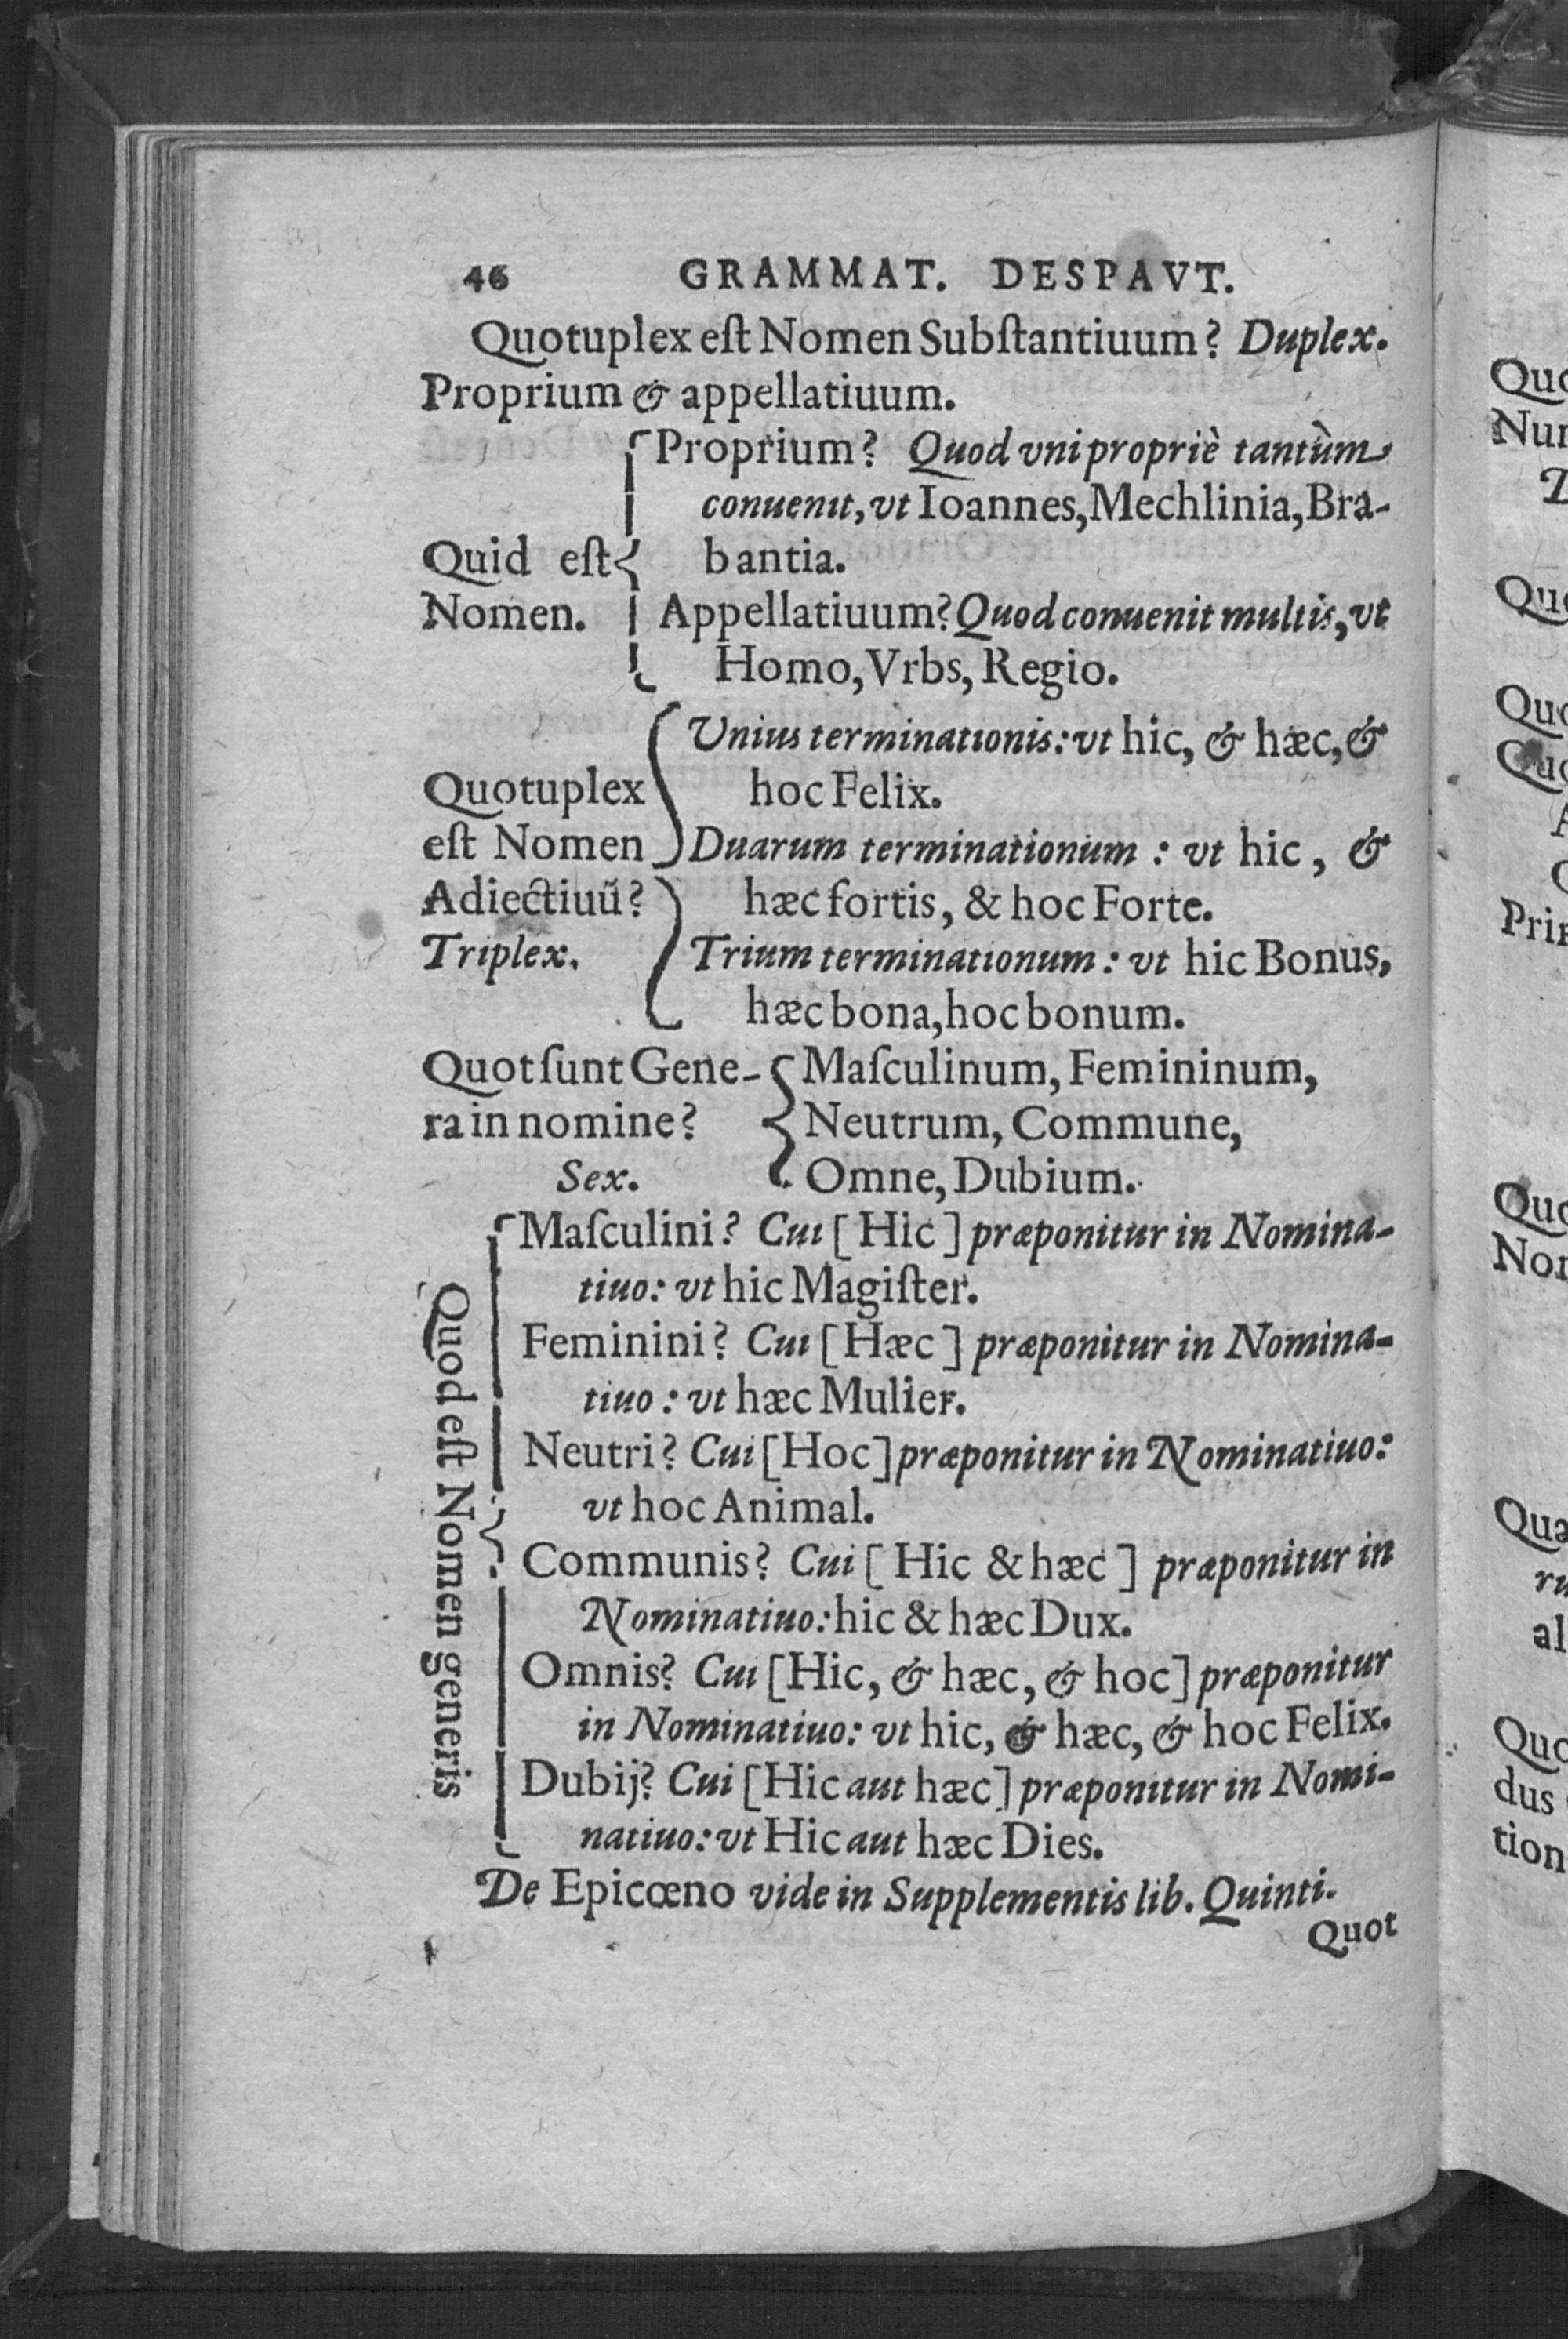 46 GRAMMAT. DESPAVT.
Quotuplex eſt Nomen Subſtantiuum? Duplex.
Proprium & appellatiuum.
Quid eſt
Nomen.
Proprium? Quod vni propriè tantùm
conuenit, vt Ioannes, Mechlinia, Bra-
bantia.
Appellatiuum? Quod conuenit multis, vt
Homo, Vrbs, Regio.
Quotuplex
eſt Nomen
Adiectiuũ?
Triplex.
Vnius terminationis: vt hic, & hæc, &
hoc Felix.
Duarum terminationum: vt hic, &
hæc fortis, & hoc Forte.
Trium terminationum: vt hic Bonus,
hæc bona, hoc bonum.
Quot ſunt Gene-
ra in nomine?
Sex.
Maſculinum, Femininum,
Neutrum, Commune,
Omne, Dubium.
Quod eſt Nomen generis
Maſculini? Cui [Hic] præponitur in Nomina-
tiuo: vt hic Magiſter.
Feminini? Cui [Hæc] præponitur in Nomina-
tiuo: vt hæc Mulier.
Neutri? Cui [Hoc] præponitur in Nominatiuo:
vt hoc Animal.
Communis? Cui [Hic & hæc] præponitur in
Nominatiuo: hic & hæc Dux.
Omnis? Cui [Hic, & hæc, & hoc] præponitur
in Nominatiuo: vt hic, & hæc, & hoc Felix.
Dubij? Cui [Hic aut hæc] præponitur in Nomi-
natiuo: vt Hic aut hæc Dies.
De Epicœno vide in Supplementis lib. Quinti.
Quot